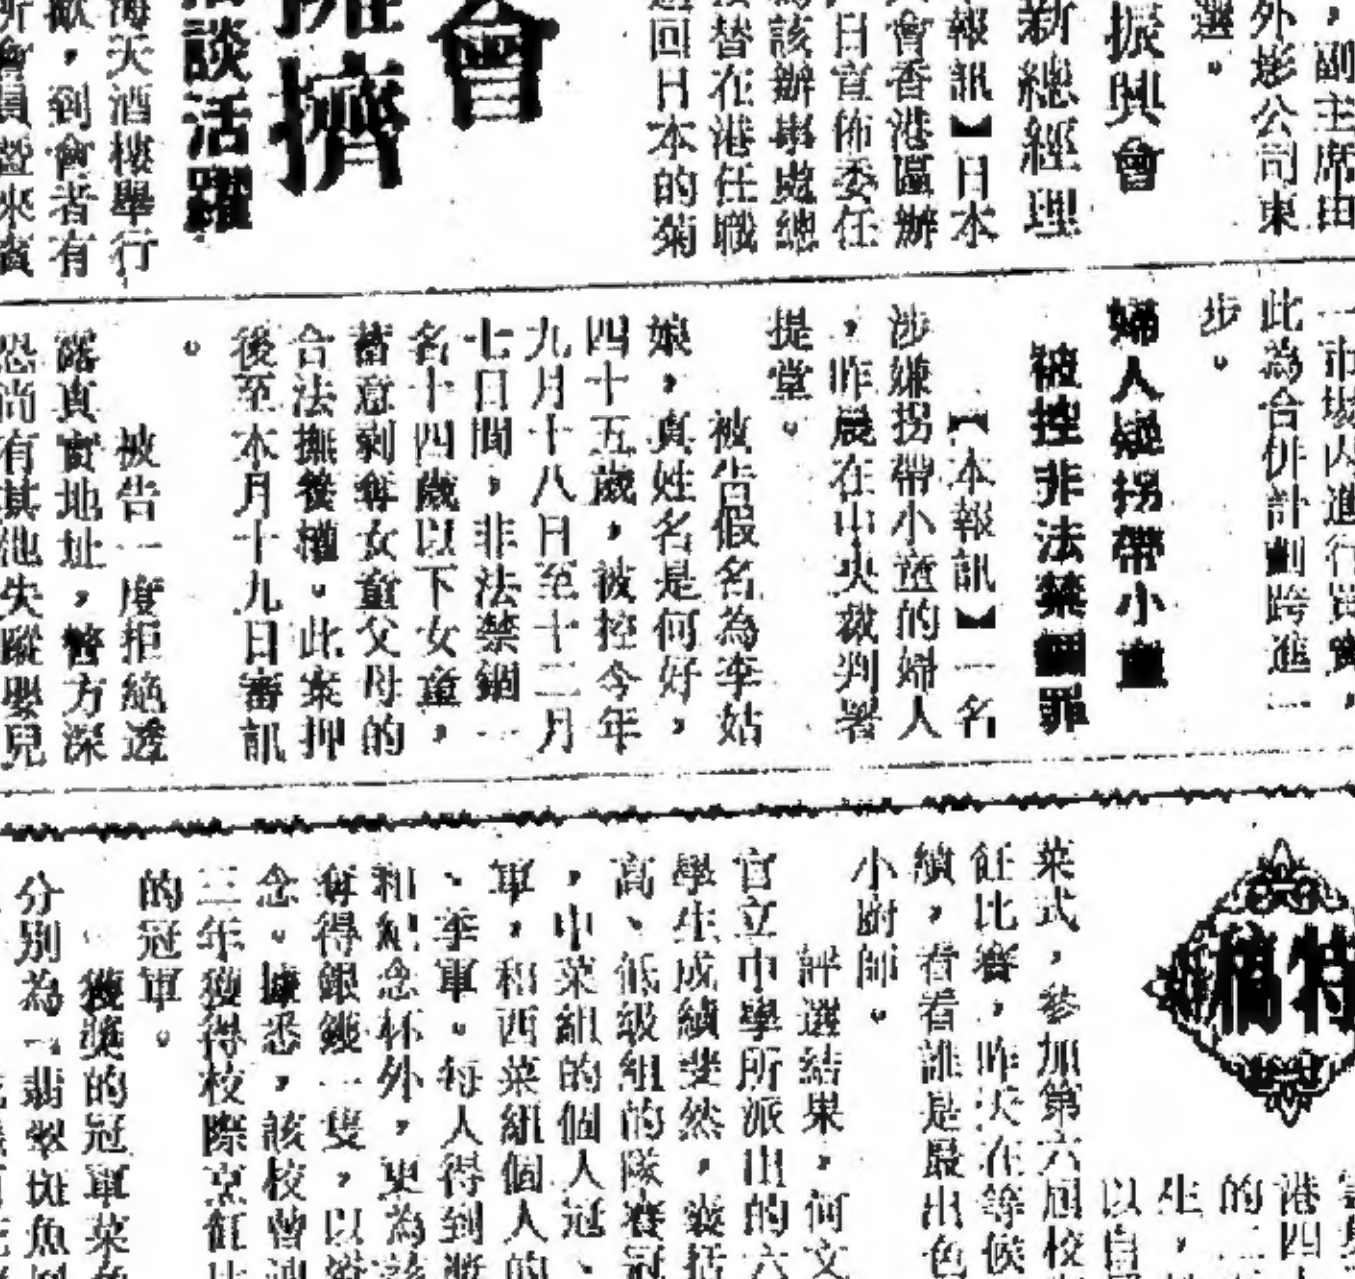 ，副主席由
外影公司東
選。
振興會
新總經理
報訊】日本
會香港區辦
日宣佈委任
為該辦事處總
接替在港任職
返回日本的菊
會
擁擠
談活躍
海天酒樓舉行
歡，到會者有
所會員暨來賓
一市場內進行買賣，
此為合併計劃跨進一
步。
婦人疑拐帶小童
被控非法禁錮罪
【本報訊】一名
涉嫌拐帶小童的婦人
，昨晨在中央裁判署
提堂。
被告假名為李姑
娘，真姓名是何好，
四十五歲，被控今年
九月十八日至十二月
七日間，非法禁錮一
名十四歲以下女童，
蓄意剝奪女童父母的
合法撫養權。此案押
後至本月十九日審訊
。
被告一度拒絕透
露真實地址，警方深
恐尚有其他失蹤嬰兒
特稿
港四
的二
生，
以自
菜式，參加第六屆校
飪比賽，昨天在等候
績，看看誰是最出色
小廚師。
評選結果，何文
官立中學所派出的六
學生成績斐然，囊括
高、低級組的隊賽冠
，中菜組的個人冠、
軍，和西菜組個人的
、季軍。每人得到獎
和紀念杯外，更為該
奪得銀鑊一隻，以資
念。據悉，該校曾
三年獲得校際烹飪比
的冠軍。
獲獎的冠軍菜
分別為「翡翠斑魚